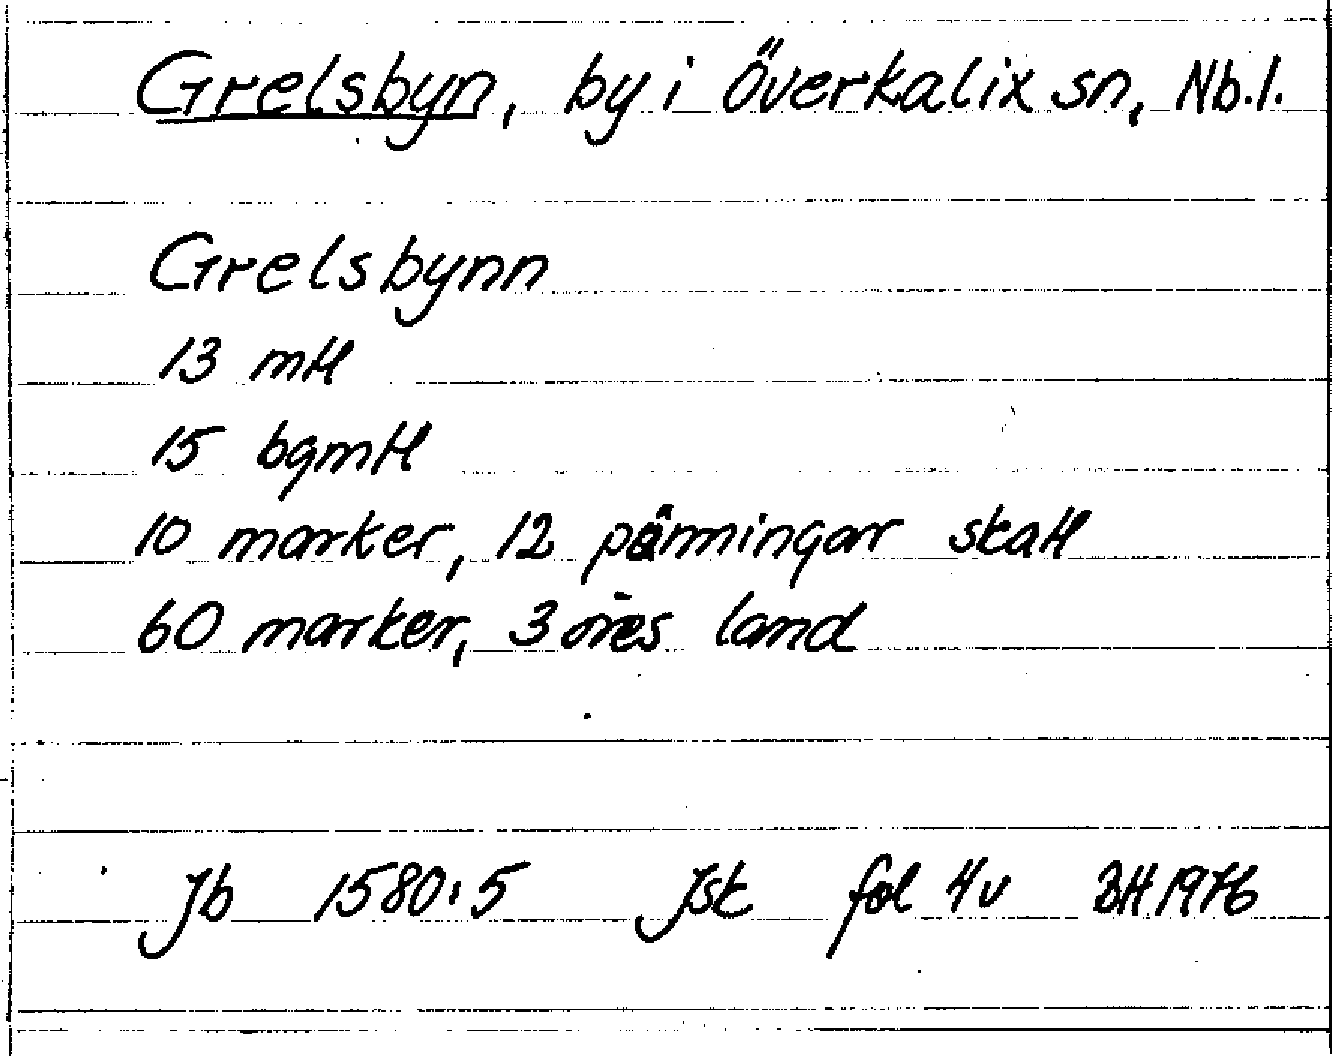 Grelsbyn, by i Överkalix sn, Nb.l.
Grelsbynn
13 mtl
15 bgmtl
10 marker, 12 pänningar skatt
60 marker, 3 öres land
Jb 1580:5 Jsk fol 4v BH 1976